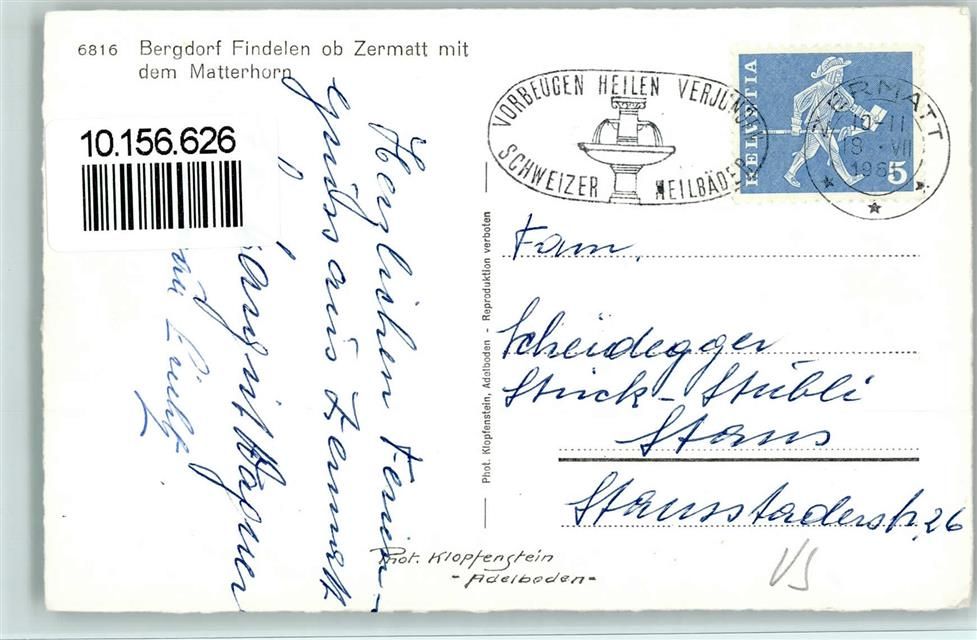 6816 Bergdorf Findelen ob Zermatt mit
dem Matterhorn
10.156.626
VORBEUGEN HEILEN VERJÜNGEN
SCHWEIZER HEILBÄDER
HELVETIA
5
ZERMATT
VII
Herzlichen Ferien-
gruss aus Zermatt
Wagner
Phot. Klopfenstein, Adelboden - Reproduktion verboten
Fam.
Scheidegger
Strick-Stübli
Stans
Stansstaderstr. 26
Phot. Klopfenstein
-Adelboden-
VS